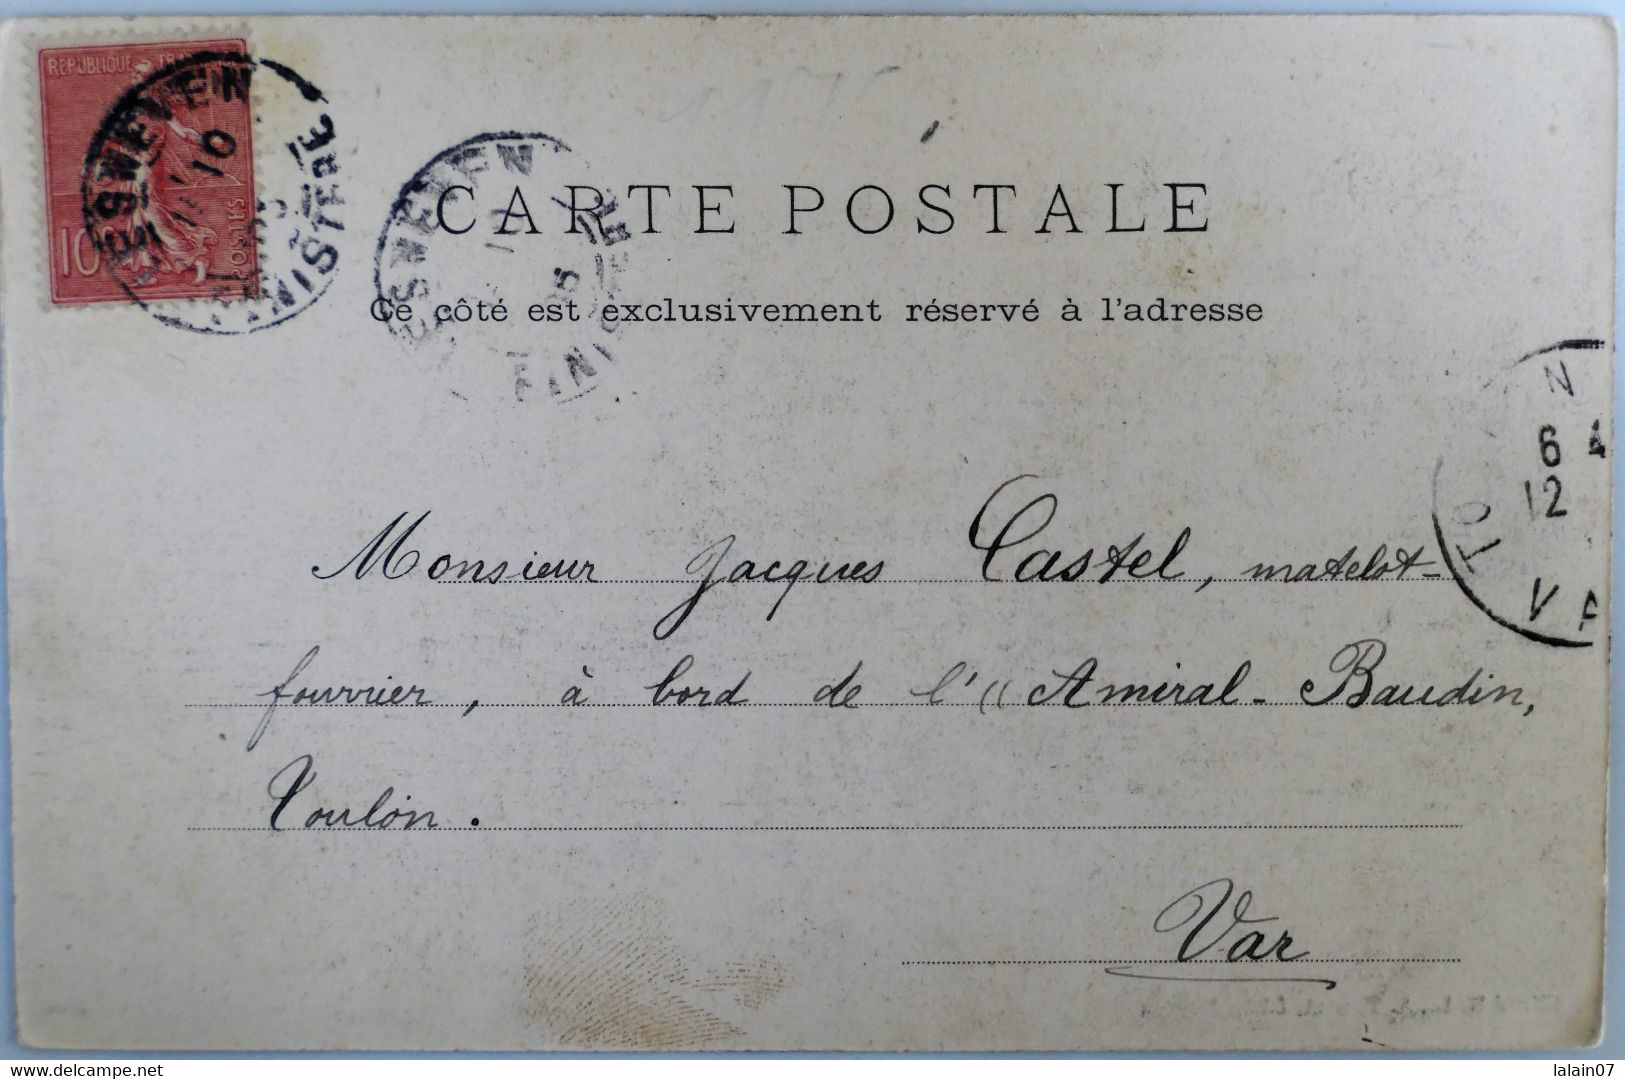 REPUBLIQUE
10
POSTES
SNEVEN
10
FINISTERE
ESNEVEN
FINISTERE
CARTE POSTALE
Ce côté est exclusivement réservé à l'adresse
N
6
12
TO
VA
Monsieur Jacques Castel, matelot-
fourrier, à bord de l'"Amiral-Baudin,
Toulon.
Var
lalain07